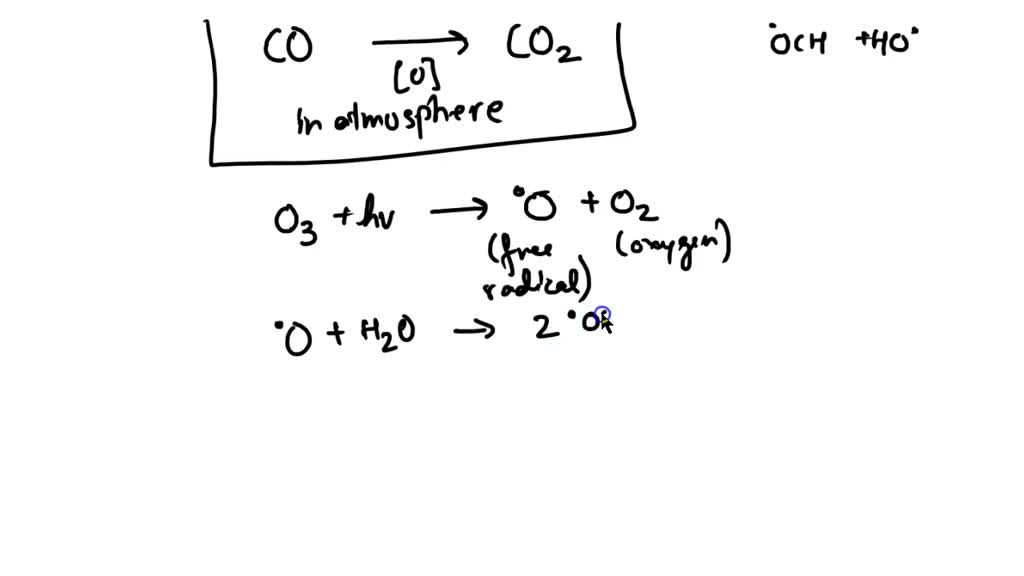 CO → CO₂
[O]
in atmosphere
•OCH + HO•
O₃ + hν → •O + O₂
(free radical) (oxygen)
•O + H₂O → 2 •O